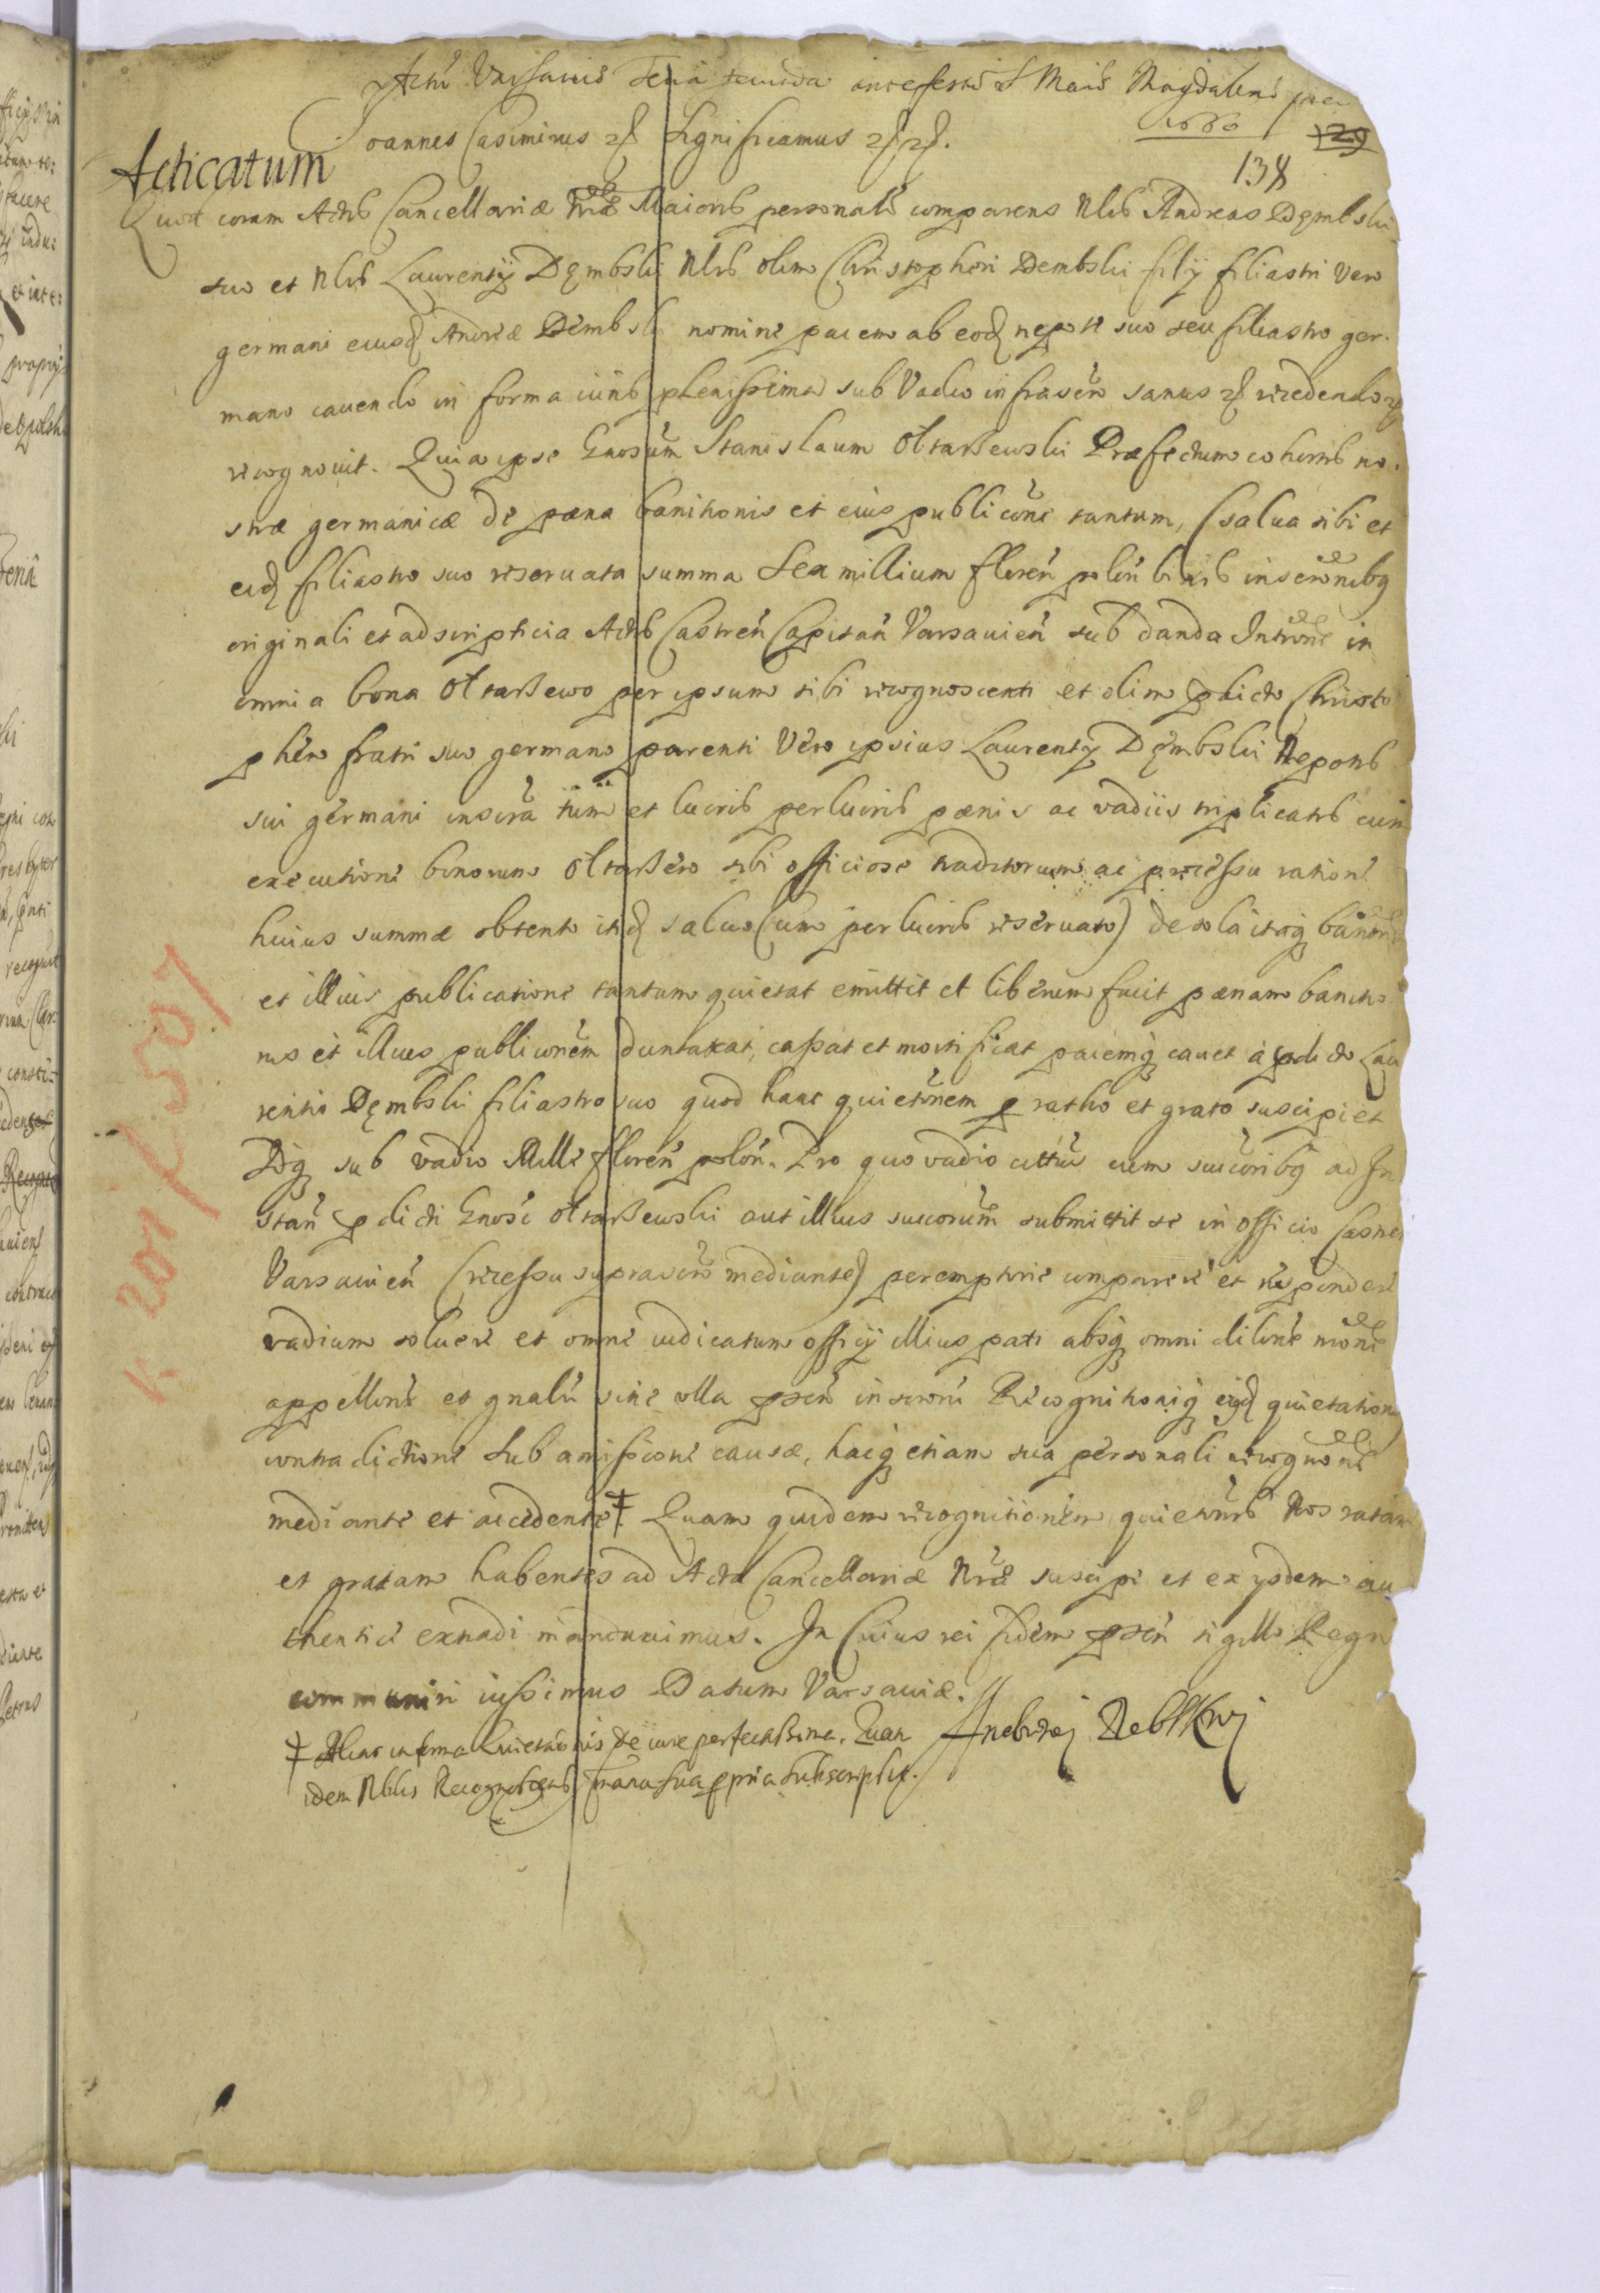 Actũ Varsauiæ Feria secunda ante festũ S Mariæ Magdalenæ
1660
129
138
Joannes Casimirus
Significamus
Acticatum
Quod coram Actis Cancellariæ Nrẽ Maioris personalr comparens Nlis Andreas Dęmbski
suo et Nlis Laurentÿ Dęmbski Nlis olim Christophori Dembski filÿ filiastri vero
germani eiusd Andreæ Dembski nomine pacem ab eod nepote suo seu filiastro ger-
mano cauendo in forma iuris plenissima sub Vadio infrascro sanus recedendo
recognouit. Quia ipse Gnosum Stanislaum Ołtarzewski Præfectum cohortis no-
stræ germanicæ de pæna banitionis et eius publicõne tantum, (salua sibi et
eid filiastro suo reseruata summa Sex millium floren polon literis inscrõnibq
originali et adscripticia Actis Castreñ Capitañ Varsauieñ sub danda Intrõne in
omnia bona Ołtarzewo per ipsum sibi recognoscenti et olim pdicto Christo
phero fratri suo germano parenti vero ipsius Laurentÿ Dęmbski Nepotis
sui germani inscra tum et lucris perlucris pænis ac vadiis triplicatis cum
executione bonorum Ołtarzewo sibi officiose traditorum ac processu ratione
huius summæ obtento itid saluo (cum perlucris reseruato) de sola itaq
et illius publicatione tantum quietat emittit et liberum facit pænam banitio
nis et illius publicõnem duntaxat, cassat et mortificat pacemq cauet a pdicto Lau
rentio Dęmbski filiastro suo quod hanc quietõnem p ratho et grato suscipiet
Idq sub vadio Mille floreñ poloñ. Pro quo vadio citatus cum succoribq ad In
stañ pdicti Gnosi Ołtarzewski aut illius succorum submittit se in officio Castreñ
Varsauieñ (recessu suprascro mediante) peremptorie comparere et respondere
vadium soluere et omne iudicatum officÿ illius pati absq omni dilõne mõne
appellõne et gnalr sine ulla pseñ inscrõni Recognitioniq eiusd quietationi
contradictione sub amissione causæ, hacq etiam sua personali recognõne
mediante et accedente ‡ Quam quidem recognitionem quietõnis Nos ratam
et gratam habentes ad Acta Cancellariæ Nræ suscipi et ex ÿsdem au
thentice extradi mandauimus. In Cuius rei fidem pseñ sigillo Regni
communiri iussimus Datum Varsauiæ.
‡ Alias in forma Quietationis de iure perfectissima. Quam
idem Nblis Recognoscens manu sua ppria subscripsit.